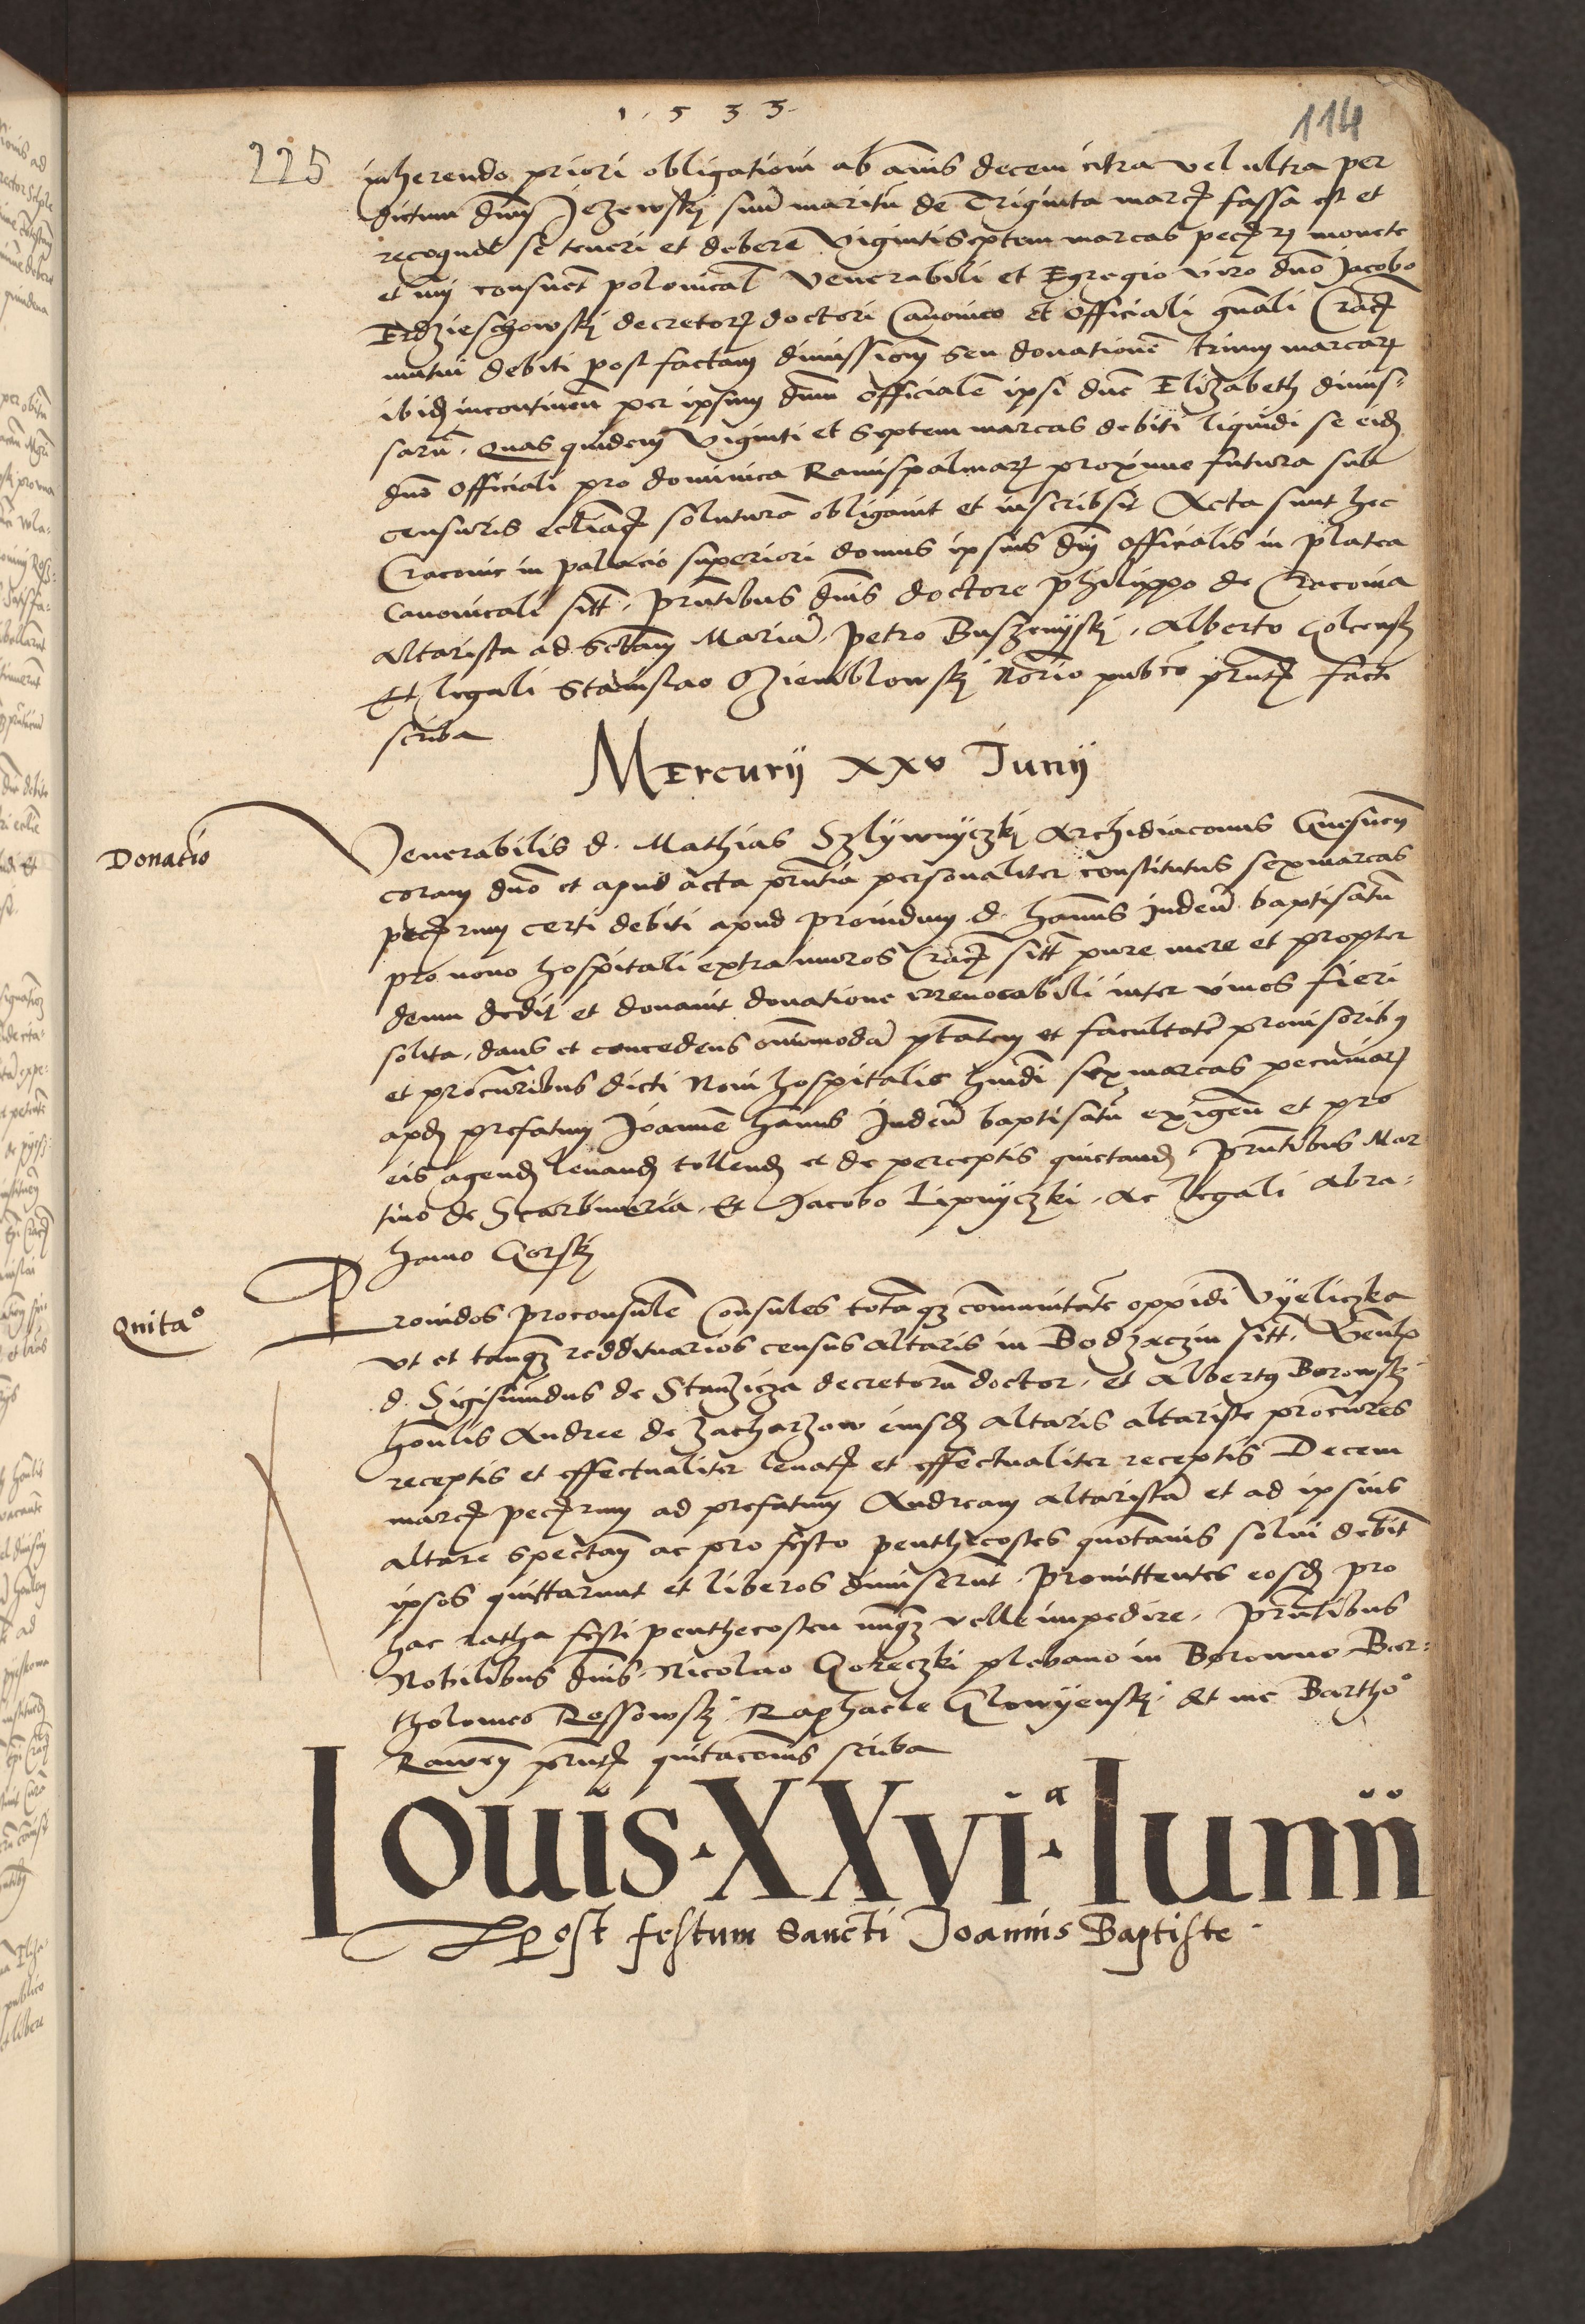 1533.
114
225
inherendo priori obligationi ab annis decem citra vel ultra per
dictum dnm Jezewskj suu maritu de Triginta marcȝ fassa est et
recognovit se teneri et debere vigintiseptem marcas pecȝrȝ monete
et nuj consuet polonical Venerabili et Egregio viro dno Jacobo
Erdzieschowskj decretorȝ doctori Canonico et Officiali gnali Cracȝ
mutui debiti post factam dimissionem seu donationem trium marcarȝ
ibidȝ incontinen per ipsum dnm Officiale ipsi dne Elizabeth dimis-
saru. quas quidem Viginti et septem marcas debiti liquidi se eidȝ
dno Officiali pro dominica Ramispalmarȝ proxime futura sub
censuris ecliacȝ soluturā obligavit et inscribsit Acta sunt hec
Cracovie in pallacio superiori domus ipsius dnj Officialis in platea
Canonicali sitt. pntibus dnis doctore philippo de Cracovia
altarista ad Sctam Maria, petro Buszenyskj, Alberto Golcenskj
Et legali Stanislao Dziemblowskj Norio pubco pntȝ facti
scriba
Mercurij xxv Junij
Donatio
Venerabilis d. Mathias Szlywnyczkj Archidiaconus Gnesnen
coram dno et apud acta pntia personaliter constitutus sexmarcas
pecȝrum certi debiti apud providum d. hanus judeu baptisatu
pro novo hospitali extra muros Cracȝ sitt pure mere et propter
deum dedit et donavit donatione irrevocabili inter vivos fieri
solita, dans et concedens omnimoda ptatem et facultate provisoribȝ
et procuribus dicti Novi hospitalis hmoi sexmarcas pecuniarȝ
apdȝ prefatum Joanne hanus Judeu baptisatu exigen et pro
eis agendȝ levandȝ tollendȝ et de perceptis quictandȝ. pntibus Mar
tino de Scarbimiria, Et Jacobo Lipnyczki, Ac legali Abra-
hamo Gorskj
Quitao
Providos proconsule Consules totaqȝ communitate oppidi Vyeliczka
ut et tanqȝ reddituarios census altaris in Bodzaczin sitt. Venlȝ
d. Sigismundus de Stanzicza decretoru doctor, et Albertȝ Borowskj
honlis Andree de Zacharzow eiusdȝ altaris altariste procures
receptis et effectualiter levatȝ et effectualiter receptis Decem
marcȝ pecȝrum ad prefatum Andream altarista et ad ipsius
altare spectan ac pro festo penthecostes quotannis solui debit
ipsos quittarunt et liberos dimiserut. promittentes eosdȝ pro
hac ratha festi penthecosten nunqȝ velle impedire. pntibus
Nobilibus dnis Nicolao Goreczki plebano in Borowno Bar-
tholomeo Rossowskj, Raphaele Glowyenskj, Et me Bartho
Rawen pntȝ quitaconis scriba
Iouis·XXvi·a Iunii
Post festum Sancti Joannis Baptiste.